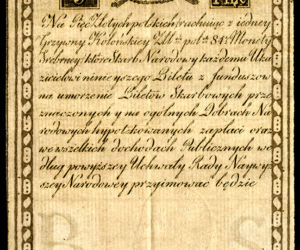 5 PIĘC
Na Pięc Złotych polskich, rachuiąc z iedney
Grzywny Kolońskiey Zlt. pol. 84½ Monety
Srebrney, które Skarb Narodowy każdemu Oka-
zicielowi ninieyszego Biletu z funduszow
na umorzenie Biletów Skarbowych prze-
znaczonych y na ogolnych Dobrach Na-
rodowych hypotekowanych zapłaci oraz
we wszelkich dochodach Publicznych we-
dług powyższey Uchwały Rady Naywyż-
szey Narodowey przyimować będzie